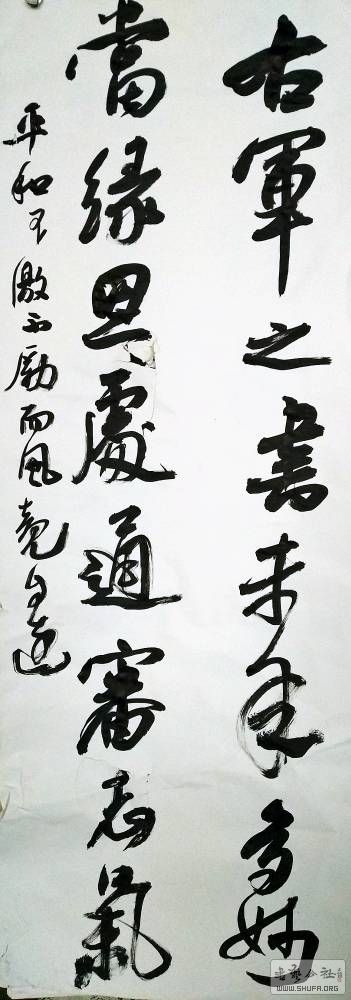 右軍之書末年多妙
當緣思慮通審志氣
平和不激不勵而風規自遠
WWW.SHUFA.ORG